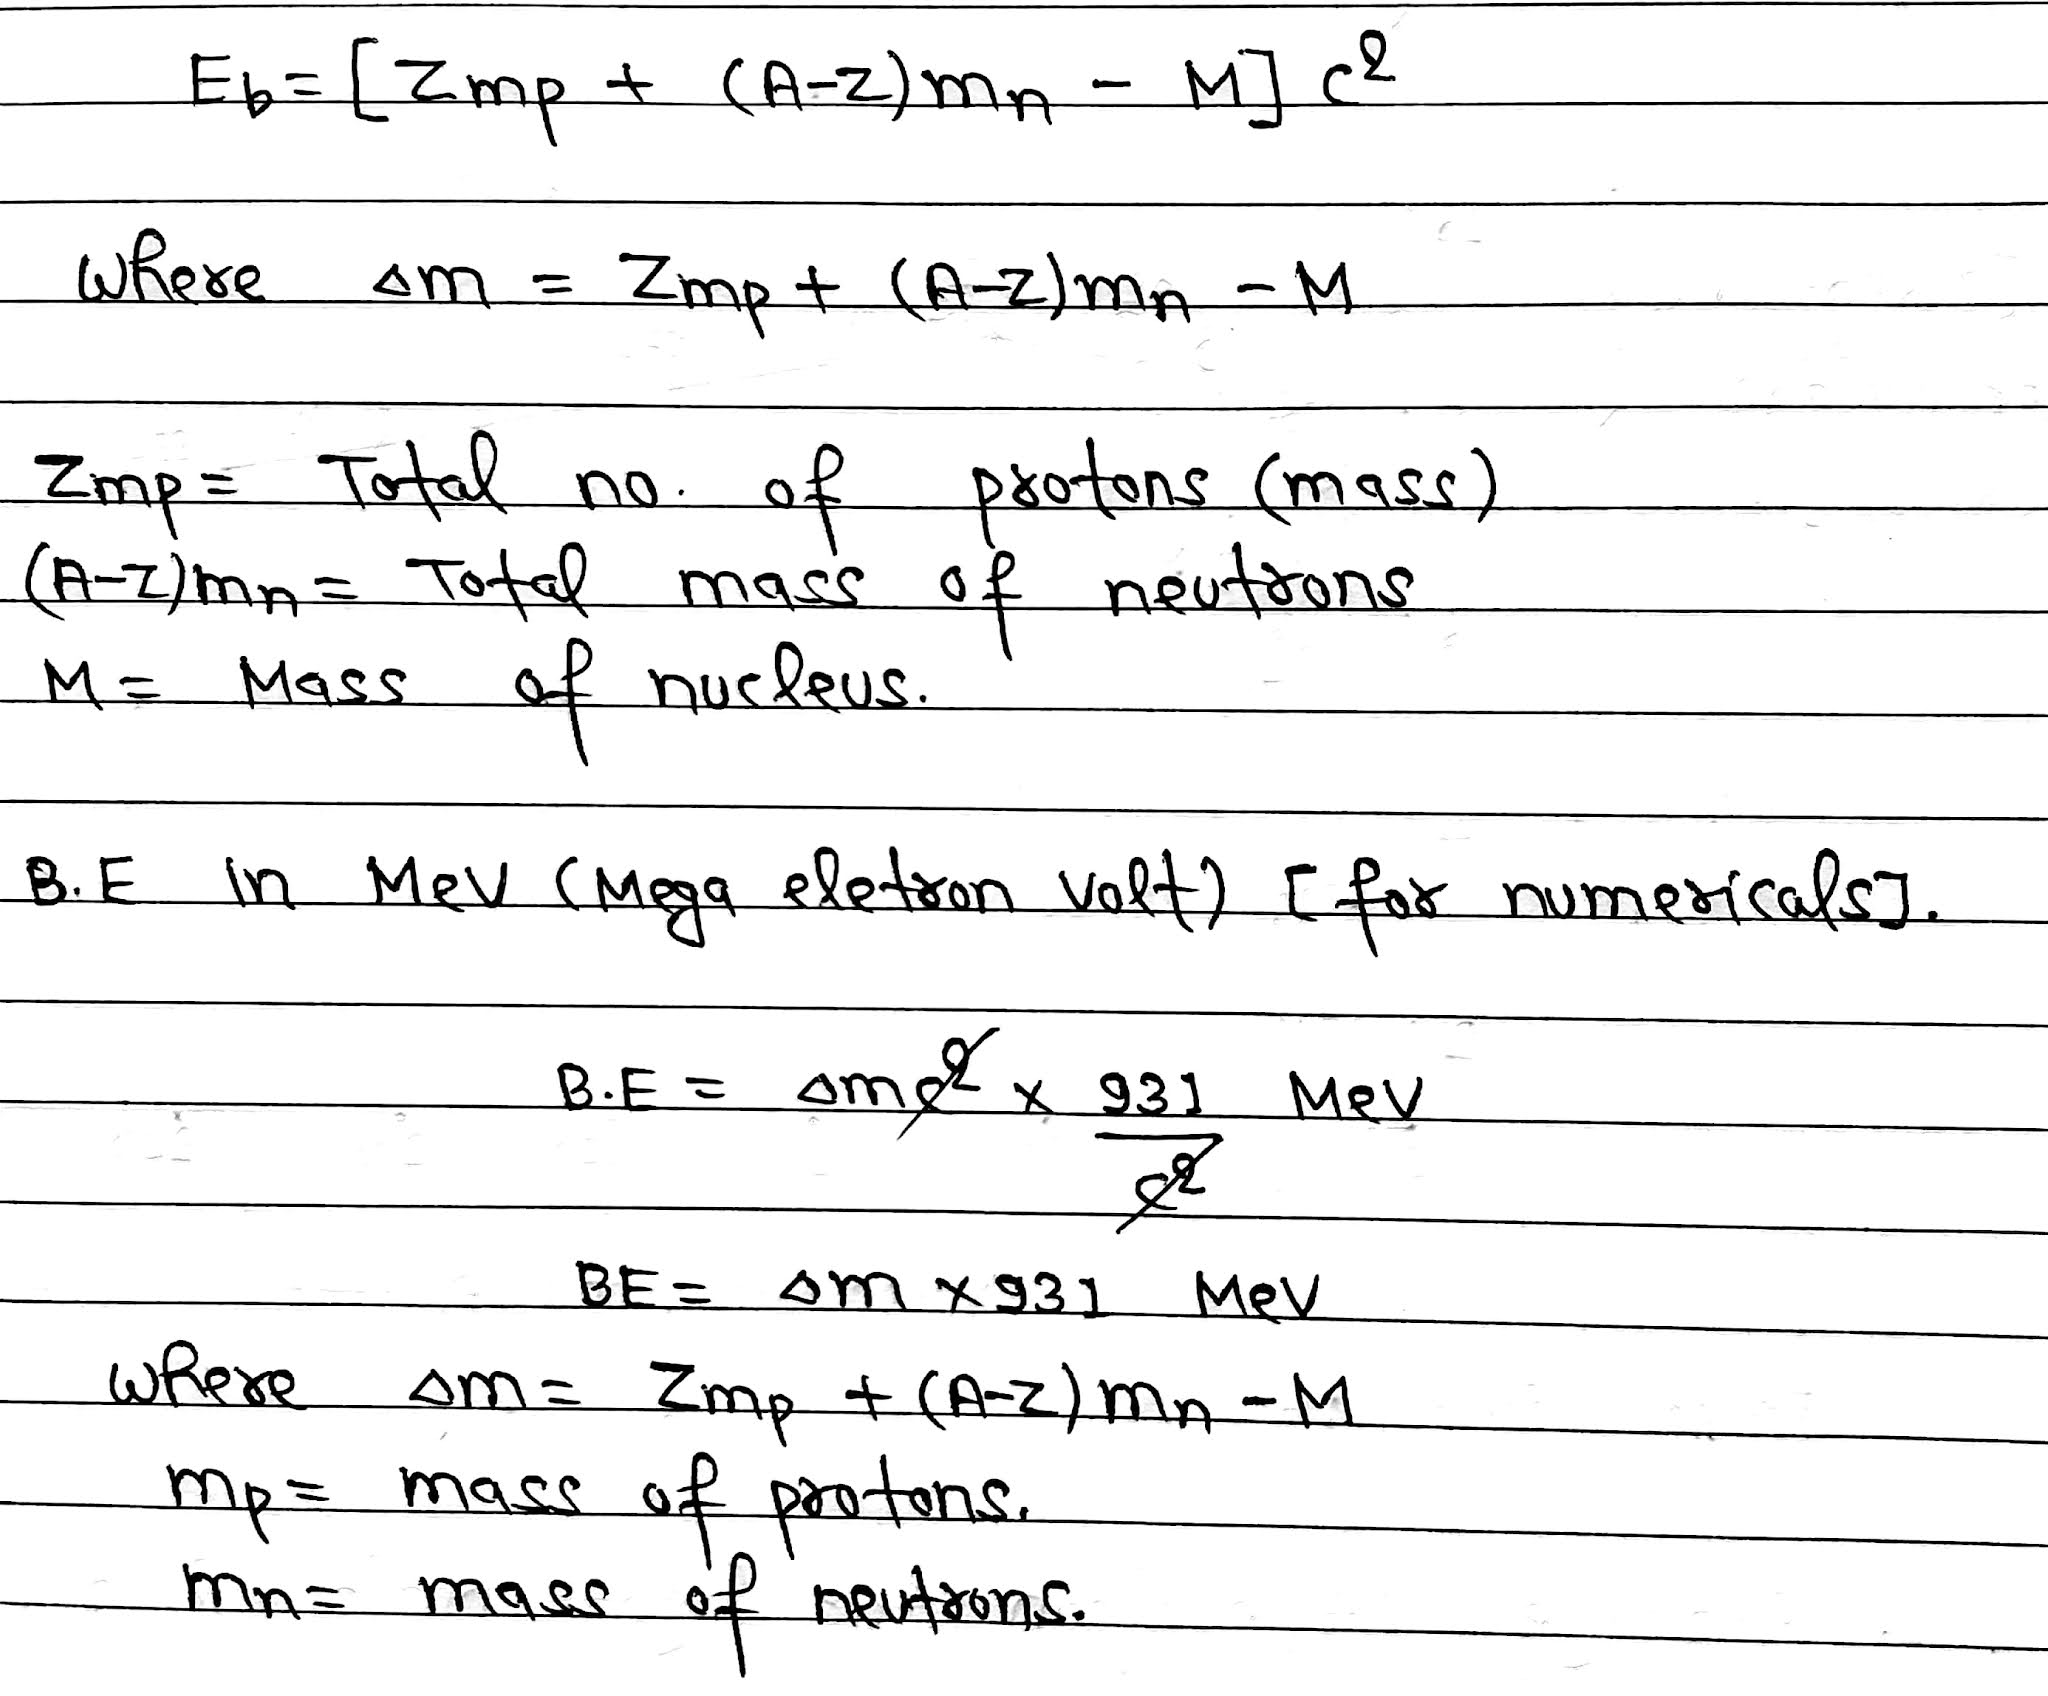 Eb = [Zmp + (A-Z)mn - M] c²
where Δm = Zmp + (A-Z)mn - M
Zmp = Total no. of protons (mass)
(A-Z)mn = Total mass of neutrons
M = Mass of nucleus.
B.E in MeV (Mega eletron volt) [for numericals].
B.E = Δmc² x 931/c² MeV
BE = Δm x 931 MeV
where Δm = Zmp + (A-Z)mn - M
mp = mass of protons.
mn = mass of neutrons.